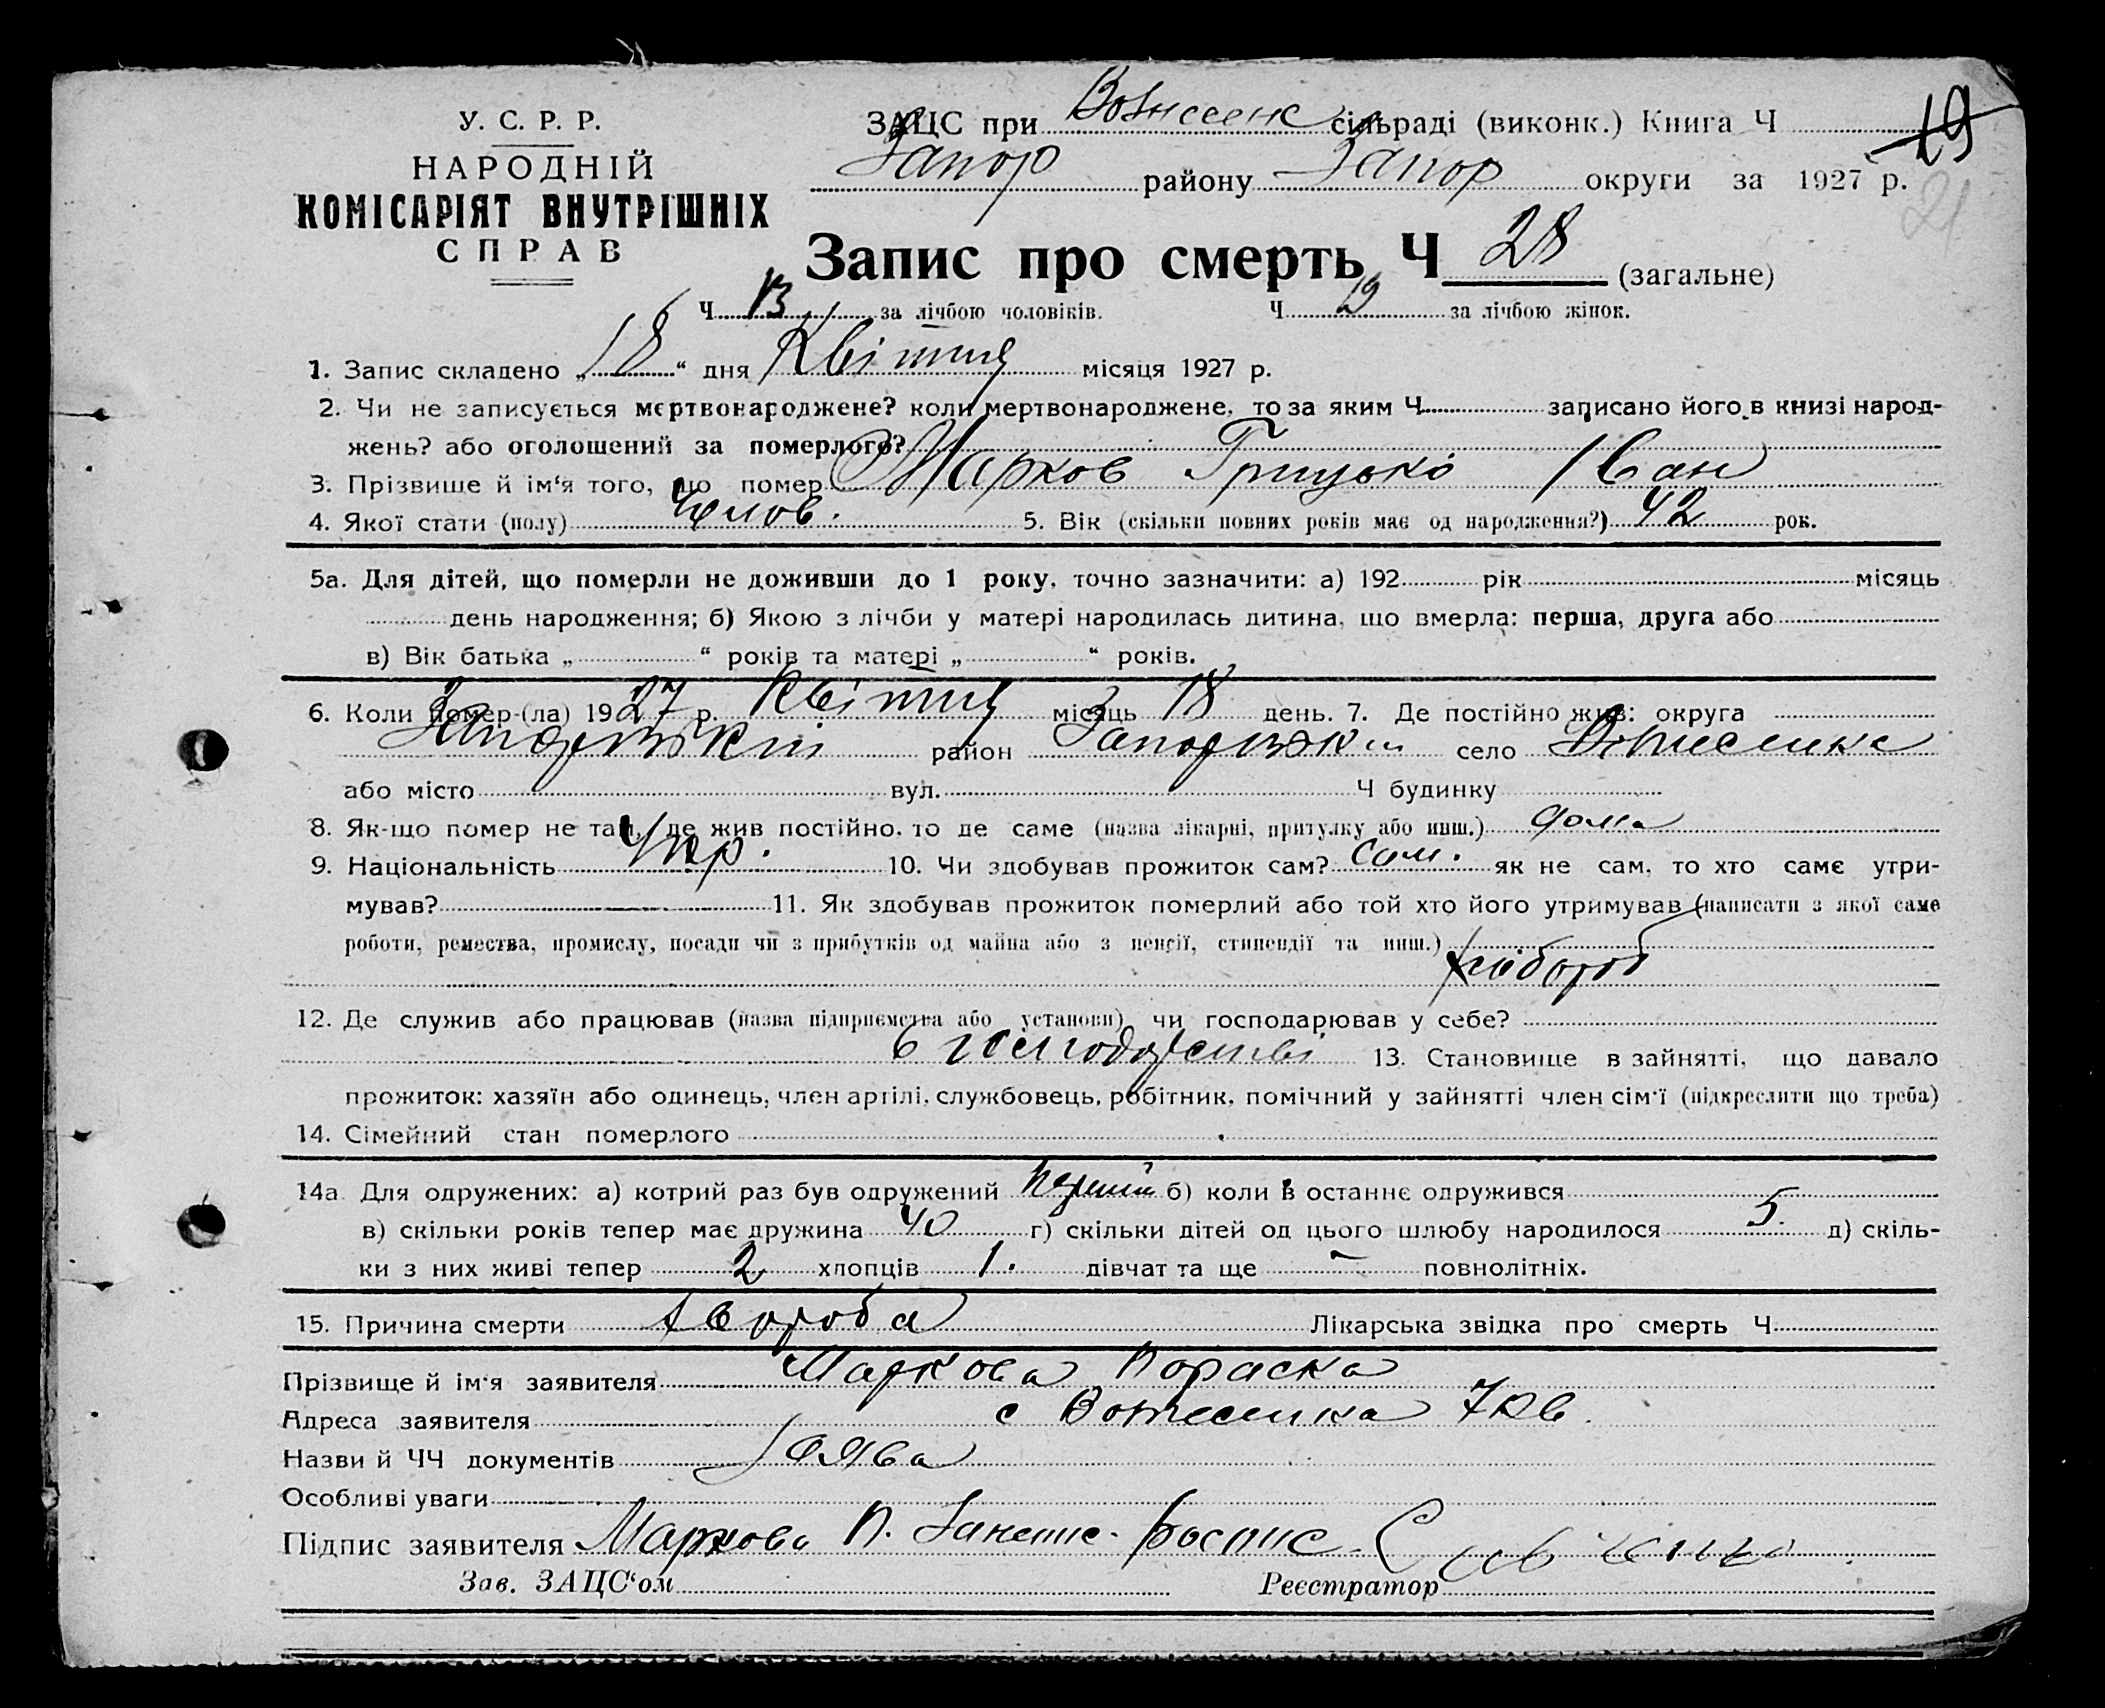 У. С. Р. Р.
НАРОДНІЙ
КОМІСАРІЯТ ВНУТРІШНІХ
СПРАВ
ЗАЦС при Вознесенс сільраді (виконк.) Книга Ч 19
Запор району Запор округи за 1927 р.
21
Запис про смерть Ч 28 (загальне)
Ч 13 за лічбою чоловіків. Ч 19 за лічбою жінок.
1. Запис складено „18“ дня Квітня місяця 1927 р.
2. Чи не записується мертвонароджене? коли мертвонароджене, то за яким Ч записано його в книзі народ-
жень? або оголошений за померлого?
3. Прізвище й ім‘я того, що помер Марков Грицько Іван
4. Якої стати (полу) чолов. 5. Вік (скільки повних років має од народження?) 42 рок.
5а. Для дітей, що померли не доживши до 1 року, точно зазначити: а) 192 рік місяць
день народження; б) Якою з лічби у матері народилась дитина, що вмерла: перша, друга або
в) Вік батька „ “ років та матері „ “ років.
6. Коли помер-(ла) 1927 р. Квітня місяць 18 день. 7. Де постійно жив: округа
район село
або місто вул. Ч будинку
8. Як-що помер не там, де жив постійно, то де саме (назва лікарні, притулку або инш.) дома
9. Національність Укр. 10. Чи здобував прожиток сам? сам. як не сам, то хто саме утри-
мував? 11. Як здобував прожиток померлий або той хто його утримував (написати з якої саме
роботи, ремества, промислу, посади чи з прибутків од майна або з пенсії, стипендії та инш.)
хлібороб
12. Де служив або працював (назва підприємства або установи) чи господарював у себе?
в господарстві 13. Становище в зайнятті, що давало
прожиток: хазяїн або одинець, член артілі, службовець, робітник, помічний у зайнятті член сім‘ї (підкреслити що треба)
14. Сімейний стан померлого
14а Для одружених: а) котрий раз був одружений перший б) коли в останнє одружився
в) скільки років тепер має дружина 40 г) скільки дітей од цього шлюбу народилося 5. д) скіль-
ки з них живі тепер 2 хлопців 1. дівчат та ще — повнолітніх.
15. Причина смерти хвороба Лікарська звідка про смерть Ч
Прізвище й ім‘я заявителя Маркова Параска
Адреса заявителя с Вознесенка
Назви й ЧЧ документів Заява
Особливі уваги
Підпис заявителя Маркова П.
Зав. ЗАЦС‘ом Реєстратор